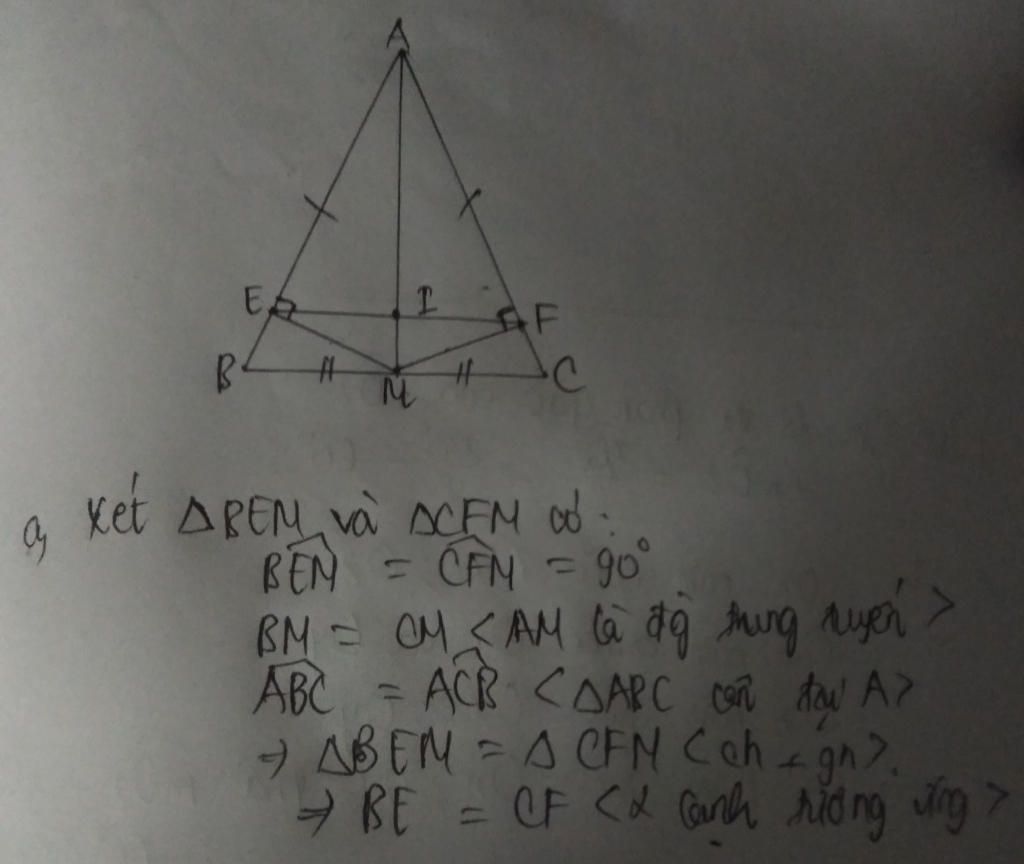 A
E I F
B M C
a, Xét ΔBEM và ΔCFM có:
BÊM = CF̂M = 90°
BM = CM < AM là đg̀ trung tuyến >
AB̂C = AĈB < ΔABC cân tại A >
⇒ ΔBEM = ΔCFM < ch - gn >.
⇒ BE = CF < 2 cạnh tương ứng >